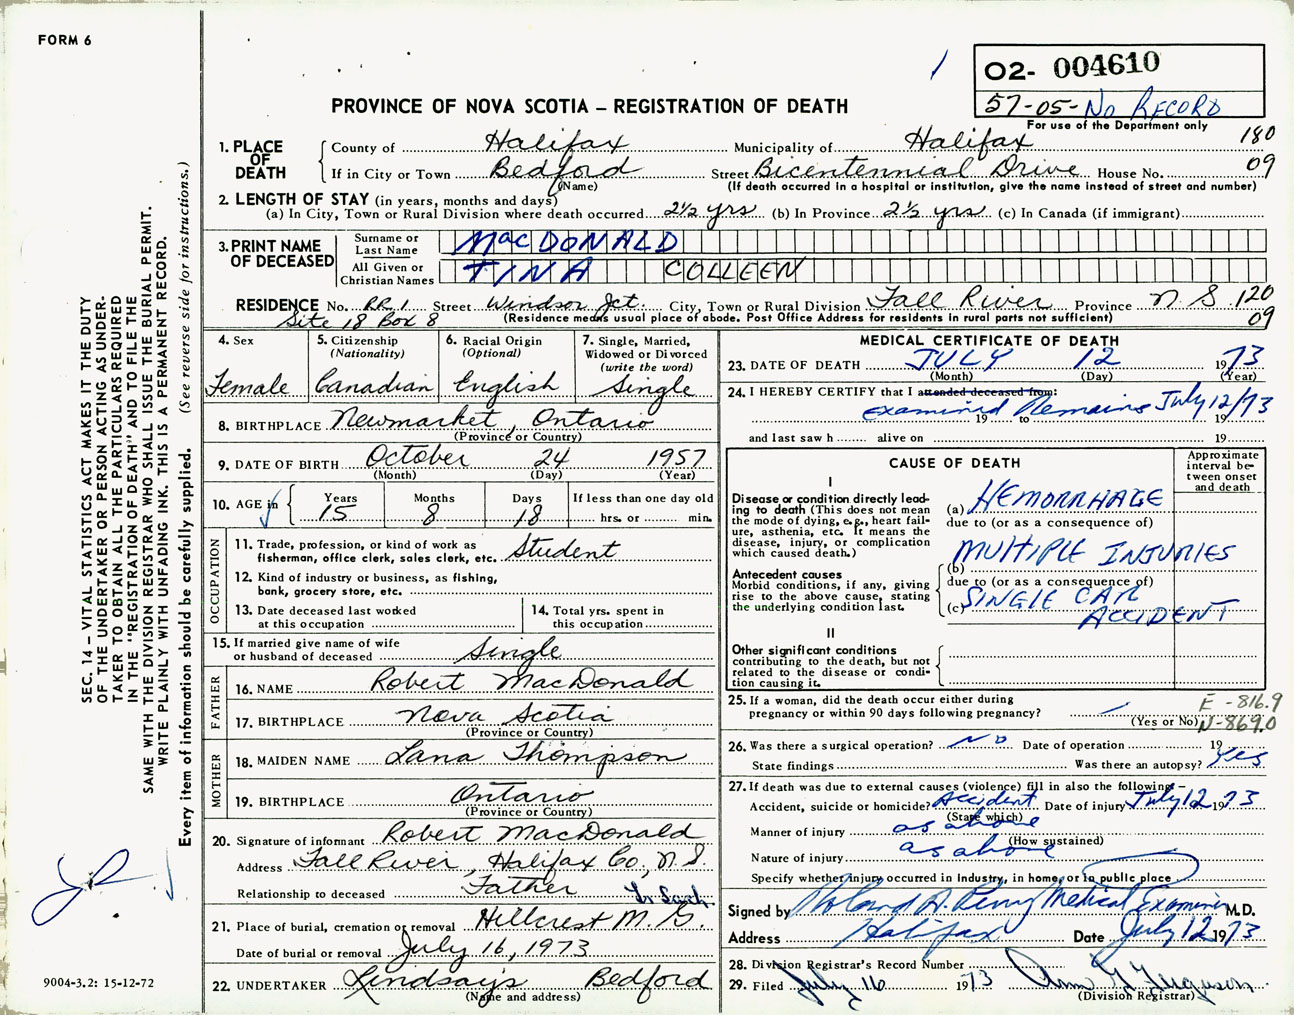 FORM 6
O2- 004610
57-05- No RECORD
For use of the Department only
PROVINCE OF NOVA SCOTIA – REGISTRATION OF DEATH
1. PLACE OF DEATH
County of Halifax Municipality of Halifax 180
If in City or Town Bedford Street Bicentennial Drive House No. 09
(Name) (If death occurred in a hospital or institution, give the name instead of street and number)
2. LENGTH OF STAY (in years, months and days)
(a) In City, Town or Rural Division where death occurred 2½ yrs (b) In Province 2½ yrs (c) In Canada (if immigrant)
3. PRINT NAME OF DECEASED
Surname or Last Name MacDONALD
All Given or Christian Names TINA COLLEEN
RESIDENCE No. RR. 1 Street Windsor Jct. City, Town or Rural Division Fall River Province N S 120
Site 18 Box 8 (Residence means usual place of abode. Post Office Address for residents in rural parts not sufficient) 09
4. Sex
Female
5. Citizenship (Nationality)
Canadian
6. Racial Origin (Optional)
English
7. Single, Married, Widowed or Divorced (write the word)
Single
8. BIRTHPLACE Newmarket, Ontario
(Province or Country)
9. DATE OF BIRTH October 24 1957
(Month) (Day) (Year)
10. AGE in
Years Months Days If less than one day old
15 8 18 hrs. or min.
OCCUPATION
11. Trade, profession, or kind of work as
fisherman, office clerk, sales clerk, etc. Student
12. Kind of industry or business, as fishing,
bank, grocery store, etc.
13. Date deceased last worked
at this occupation
14. Total yrs. spent in
this occupation
15. If married give name of wife
or husband of deceased Single
FATHER
16. NAME Robert MacDonald
17. BIRTHPLACE Nova Scotia
(Province or Country)
MOTHER
18. MAIDEN NAME Lana Thompson
19. BIRTHPLACE Ontario
(Province or Country)
20. Signature of informant Robert MacDonald
Address Fall River, Halifax Co, N. S.
Relationship to deceased Father
21. Place of burial, cremation or removal Hillcrest M. G.
Date of burial or removal July 16, 1973
22. UNDERTAKER Lindsay's Bedford
(Name and address)
MEDICAL CERTIFICATE OF DEATH
23. DATE OF DEATH JULY 12 1973
(Month) (Day) (Year)
24. I HEREBY CERTIFY that I attended deceased from:
examined Remains July 12/73
19 to 19
and last saw h alive on 19
CAUSE OF DEATH
Approximate interval between onset and death
I
Disease or condition directly lead-
ing to death (This does not mean
the mode of dying, e.g., heart fail-
ure, asthenia, etc. It means the
disease, injury, or complication
which caused death.)
(a) HEMORRHAGE
due to (or as a consequence of)
MULTIPLE INJURIES
(b)
Antecedent causes
Morbid conditions, if any, giving
rise to the above cause, stating
the underlying condition last.
due to (or as a consequence of)
(c) SINGLE CAR
ACCIDENT
II
Other significant conditions
contributing to the death, but not
related to the disease or condi-
tion causing it.
25. If a woman, did the death occur either during
pregnancy or within 90 days following pregnancy?
(Yes or No)
E -816.9
N-869.0
26. Was there a surgical operation? No Date of operation 19
State findings Was there an autopsy? Yes
27. If death was due to external causes (violence) fill in also the following–
Accident, suicide or homicide? Accident Date of injury July 12 1973
(State which)
Manner of injury as above
(How sustained)
Nature of injury as above
Specify whether injury occurred in Industry, in home, or in public place
Signed by Roland A. Perry Medical Examiner M.D.
Address Halifax Date July 12 1973
28. Division Registrar's Record Number
29. Filed July 16 1973 Ann G Ferguson
(Division Registrar)
SEC. 14 – VITAL STATISTICS ACT MAKES IT THE DUTY
OF THE UNDERTAKER OR PERSON ACTING AS UNDER-
TAKER TO OBTAIN ALL THE PARTICULARS REQUIRED
IN THE "REGISTRATION OF DEATH" AND TO FILE THE
SAME WITH THE DIVISION REGISTRAR WHO SHALL ISSUE THE BURIAL PERMIT.
WRITE PLAINLY WITH UNFADING INK. THIS IS A PERMANENT RECORD.
Every item of information should be carefully supplied. (See reverse side for instructions.)
9004-3.2: 15-12-72